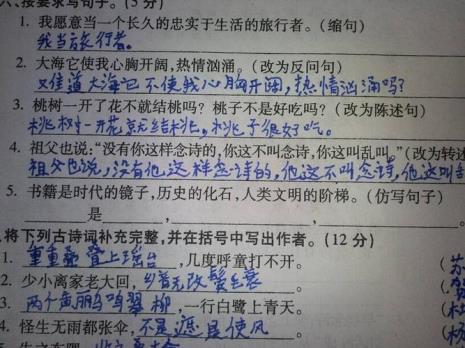 六、按要求写句子。(5 分)
1. 我愿意当一个长久的忠实于生活的旅行者。(缩句)
我当旅行者。
2. 大海它使我心胸开阔,热情汹涌。(改为反问句)
难道大海它不使我心胸开阔,热情汹涌吗?
3. 桃树一开了花不就结桃吗?桃子不是好吃吗?(改为陈述句)
桃树一开花就结桃,桃子很好吃。
4. 祖父也说:“没有你这样念诗的,你这不叫念诗,你这叫乱叫。”(改为转述
祖父也说,没有他这样念诗的,他这不叫念诗,他这叫
5. 书籍是时代的镜子,历史的化石,人类文明的阶梯。(仿写句子)
是 , , 。
将下列古诗词补充完整,并在括号中写出作者。(12 分)
1. 重重叠叠上瑶台,几度呼童打不开。 (苏
2. 少小离家老大回,乡音无改鬓毛衰。 (贺
3. 两个黄鹂鸣翠柳,一行白鹭上青天。 (杜
4. 怪生无雨都张伞,不是遮 是使风。 (杨